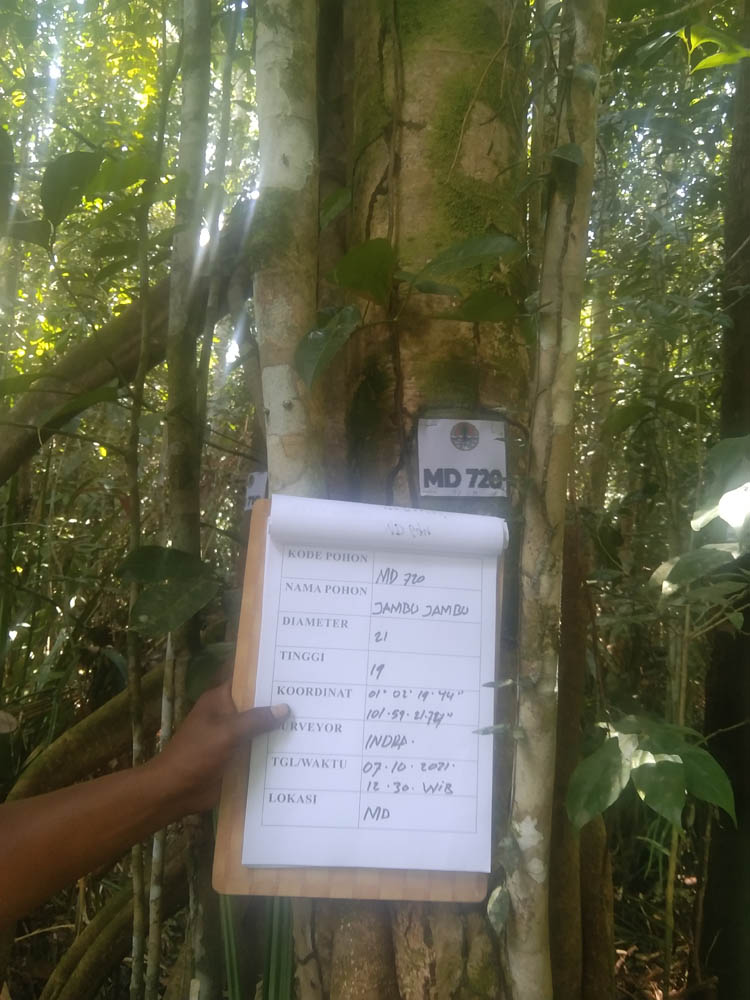 MD 720
KODE POHON MD 720
NAMA POHON JAMBU JAMBU
DIAMETER 21
TINGGI 19
KOORDINAT 01° 02' 19.44"
101.59.21.721"
SURVEYOR INDRA.
TGL/WAKTU 07.10.2021.
12.30. WIB
LOKASI MD